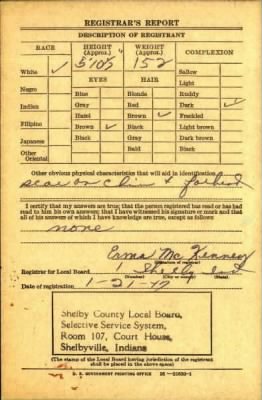 REGISTRAR'S REPORT
DESCRIPTION OF REGISTRANT
RACE HEIGHT (Approx.) WEIGHT (Approx.) COMPLEXION
White ✓ 5'10½" 152 Sallow
Light
EYES HAIR
Negro Blue Blonde Ruddy
Indian Gray Red Dark ✓
Hazel Brown ✓ Freckled
Filipino Brown ✓ Black Light brown
Japanese Black Gray Dark brown
Other Oriental Bald Black
Other obvious physical characteristics that will aid in identification
scar on chin & forhead
I certify that my answers are true; that the person registered has read or has had
read to him his own answers; that I have witnessed his signature or mark and that
all of his answers of which I have knowledge are true, except as follows:
none
Erma McKenney
Registrar for Local Board 1 Shelby Ind
(Number) (City or county) (State)
Date of registration 1-21-42
Shelby County Local Board,
Selective Service System,
Room 107, Court House,
Shelbyville, Indiana
(The stamp of the Local Board having jurisdiction of the registrant
shall be placed in the above space)
U. S. GOVERNMENT PRINTING OFFICE 16—21630-1